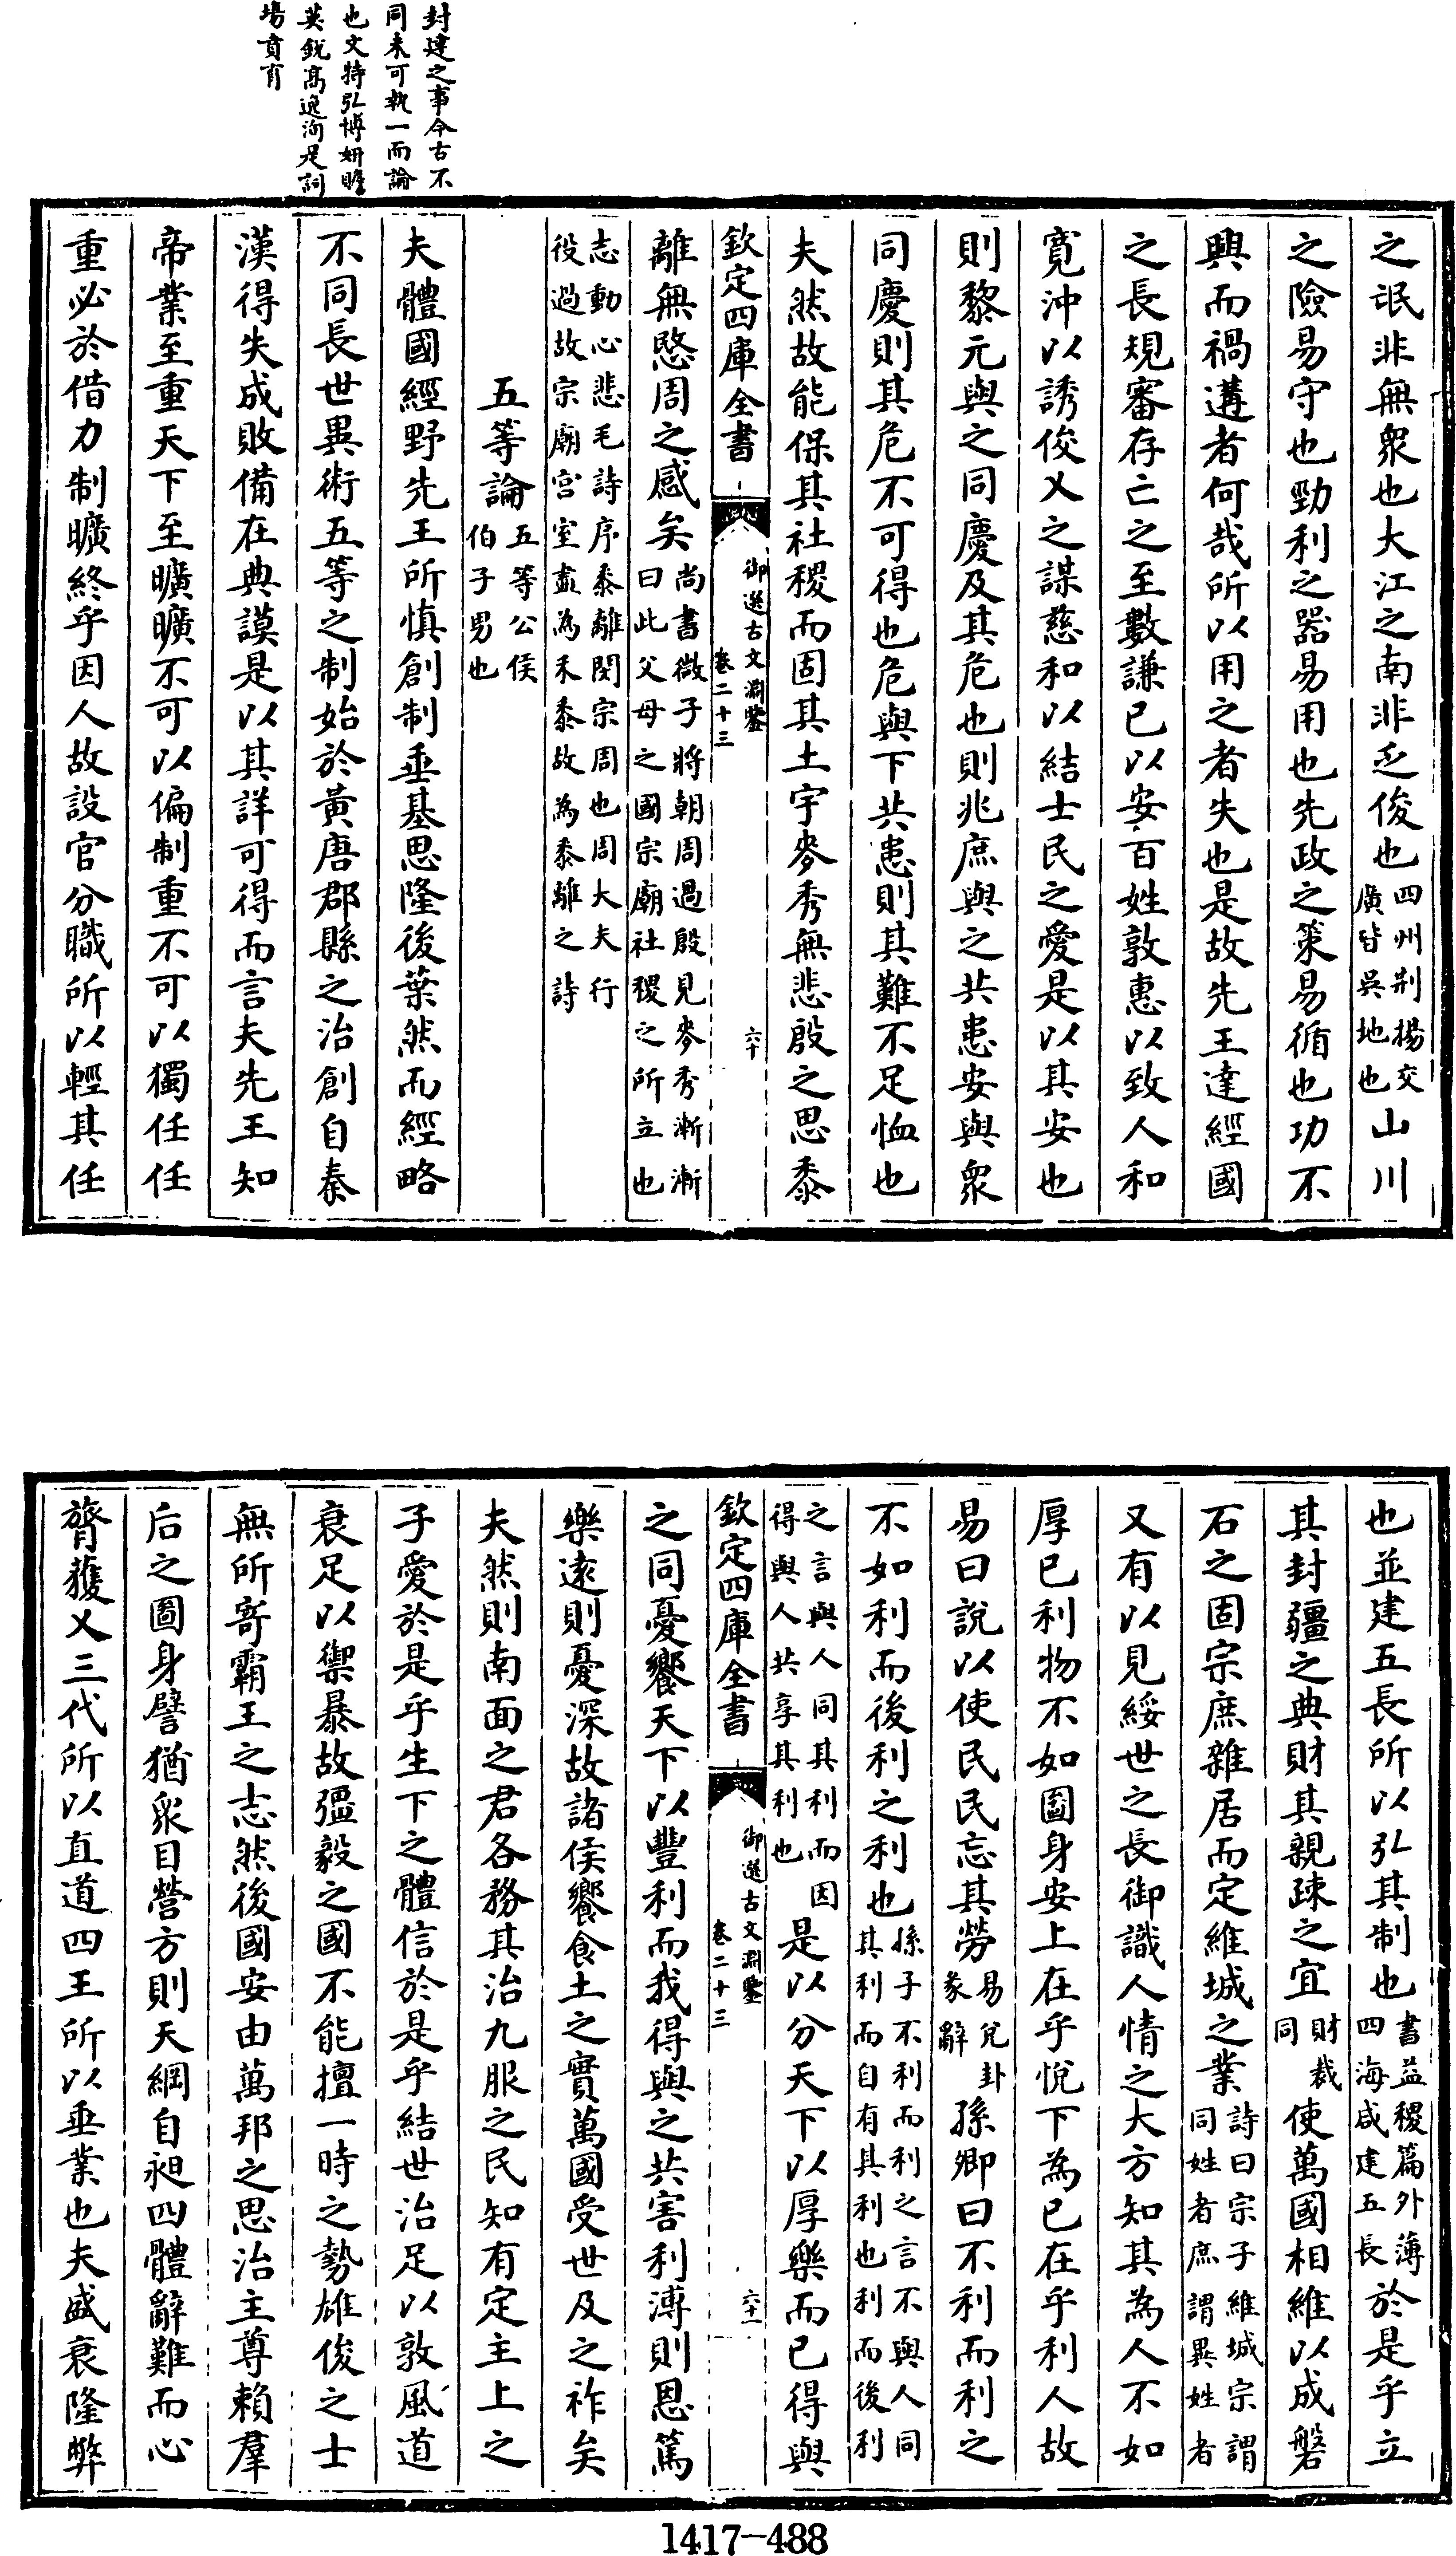 封建之事今古不
同未可執一而論
也文特弘博妍贍
英鋭高逸洵是詞
場賁育
之氓非無衆也大江之南非乏俊也四州荆楊交廣皆吳地也山川
之險易守也勁利之器易用也先政之策易循也功不
興而禍遘者何哉所以用之者失也是故先王達經國
之長規審存亡之至數謙已以安百姓敦惠以致人和
寛沖以誘俊乂之謀慈和以結士民之愛是以其安也
則黎元與之同慶及其危也則兆庶與之共患安與衆
同慶則其危不可得也危與下共患則其難不足恤也
夫然故能保其社稷而固其土宇麥秀無悲殷之思黍
欽定四庫全書 御選古文淵鑒 卷二十三 六十
離無愍周之感矣尚書微子將朝周過殷見麥秀漸漸曰此父母之國宗廟社稷之所立也
志動心悲毛詩序黍離閔宗周也周大夫行役過故宗廟宫室盡為禾黍故為黍離之詩
五等論五等公侯伯子男也
夫體國經野先王所慎創制垂基思隆後葉然而經略
不同長世異術五等之制始於黃唐郡縣之治創自秦
漢得失成敗備在典謨是以其詳可得而言夫先王知
帝業至重天下至曠曠不可以偏制重不可以獨任任
重必於借力制曠終乎因人故設官分職所以輕其任
也並建五長所以弘其制也書益稷篇外薄四海咸建五長於是乎立
其封疆之典財其親疎之宜財裁同使萬國相維以成磐
石之固宗庶雜居而定維城之業詩曰宗子維城宗謂同姓者庶謂異姓者
又有以見綏世之長御識人情之大方知其為人不如
厚已利物不如圖身安上在乎悅下為已在乎利人故
易曰說以使民民忘其勞易兌卦彖辭孫卿曰不利而利之
不如利而後利之利也孫子不利而利之言不與人同其利而自有其利也利而後利
之言與人同其利而因得與人共享其利也是以分天下以厚樂而已得與
欽定四庫全書 御選古文淵鑒 卷二十三 六十一
之同憂饗天下以豐利而我得與之共害利溥則恩篤
樂遠則憂深故諸侯饗食土之實萬國受世及之祚矣
夫然則南面之君各務其治九服之民知有定主上之
子愛於是乎生下之體信於是乎結世治足以敦風道
衰足以禦暴故彊毅之國不能擅一時之勢雄俊之士
無所寄霸王之志然後國安由萬邦之思治主尊賴羣
后之圖身譬猶衆目營方則天網自昶四體辭難而心
膂獲乂三代所以直道四王所以垂業也夫盛衰隆弊
1417-488